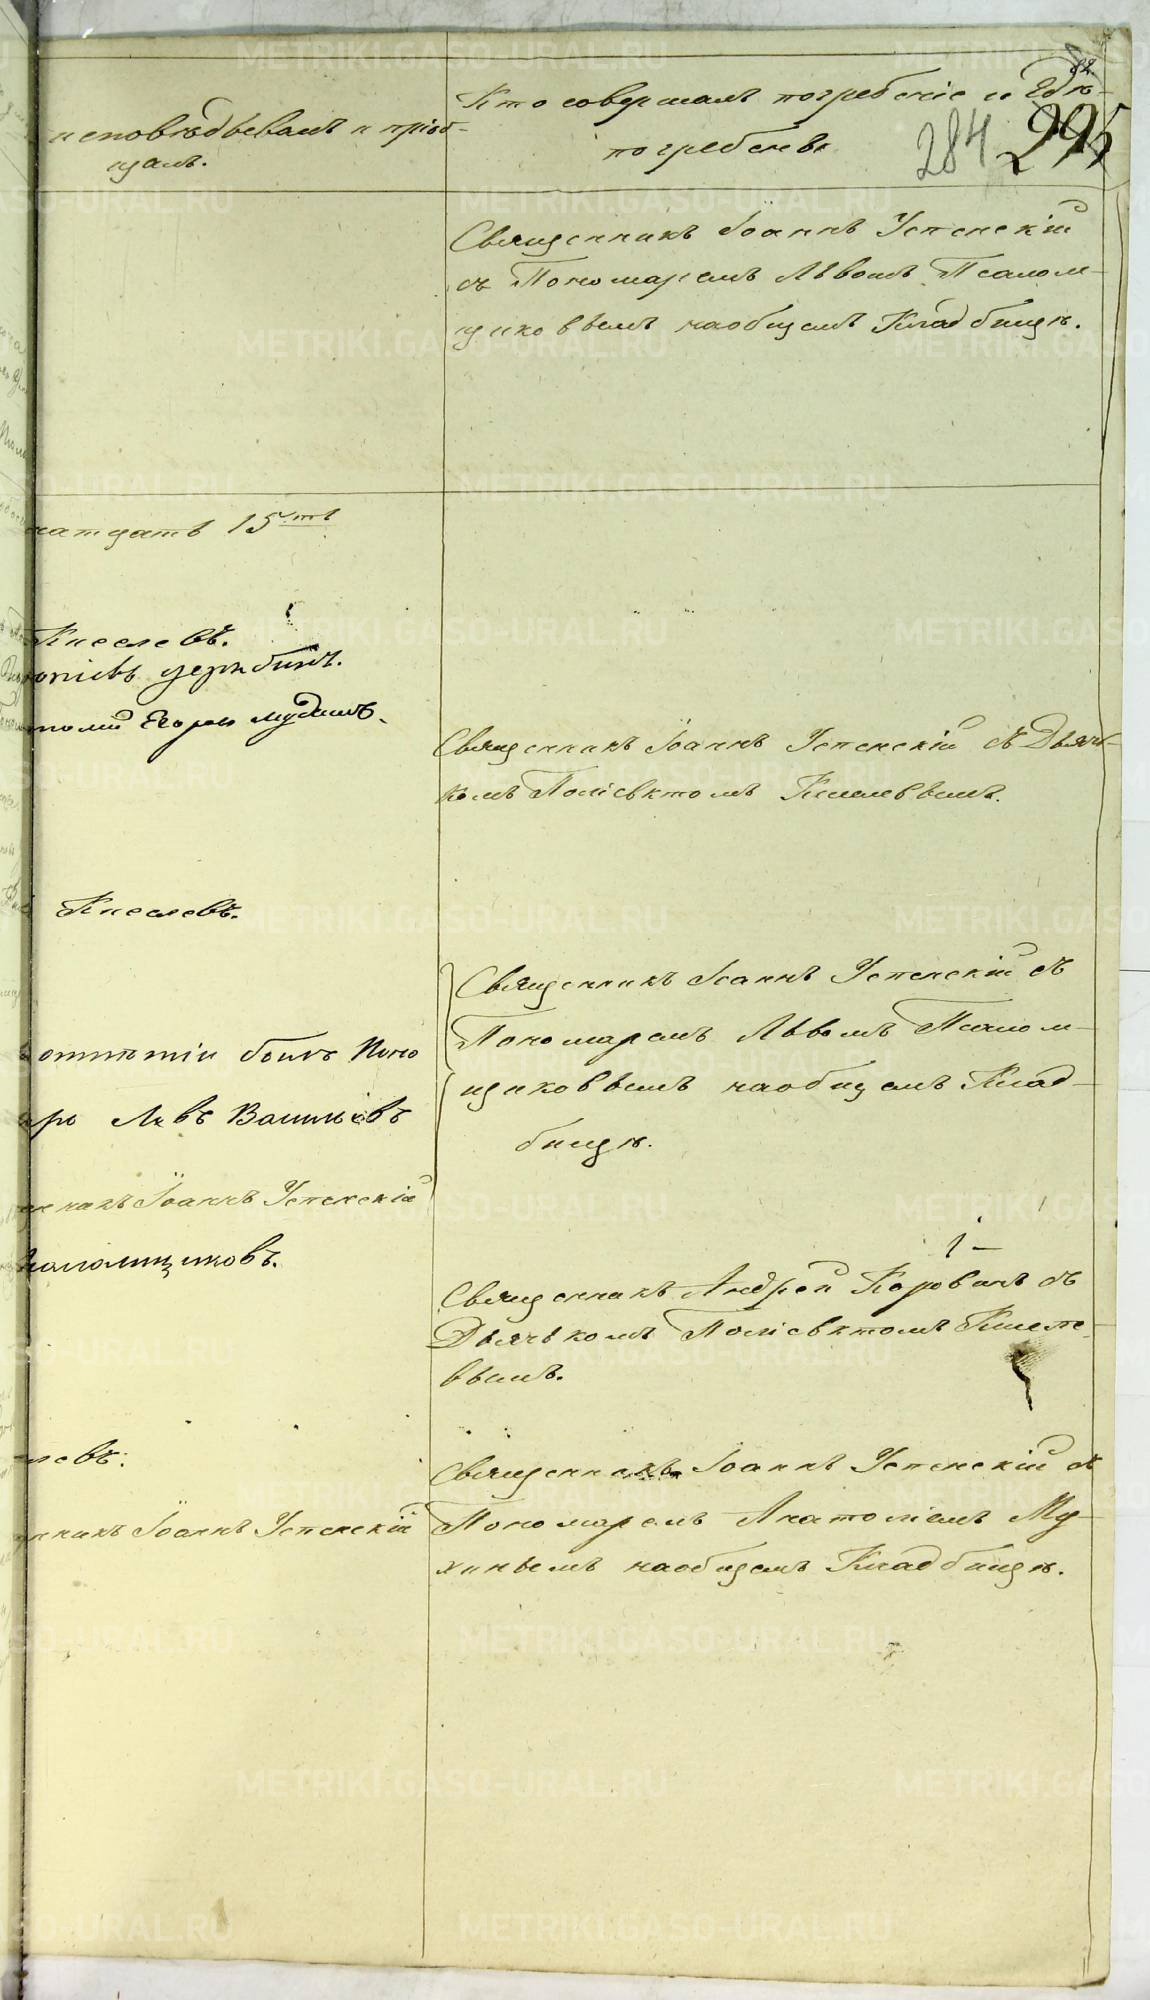 исповѣдывалъ и пріоб-
щалъ.
Кто совершалъ погребеніе и гдѣ
погребены
284 295
Священникъ Іоаннъ Успенскій
съ Пономаремъ Львомъ Псалом-
щиковымъ на общемъ Кладбищѣ.
15
Киселевъ.
Егоръ
Священникъ Іоаннъ Успенскій съ Дьяч-
комъ Поліевктомъ Киселевымъ.
Киселевъ.
Священникъ Іоаннъ Успенскій съ
Пономаремъ Львомъ Псалом-
щиковымъ на общемъ Клад-
бищѣ.
былъ Поно
арь Левъ Васильевъ
щенникъ Іоаннъ Успенскій
саломщиковъ.
1 –
Священникъ Андрей Коровинъ съ
Дьячкомъ Поліевктомъ Киселе-
вымъ.
левъ.
нникъ Іоаннъ Успенскій
Священникъ Іоаннъ Успенскій съ
Пономаремъ Анатоліемъ Му-
хинымъ на общемъ Кладбищѣ.
METRIKI.GASO-URAL.RU